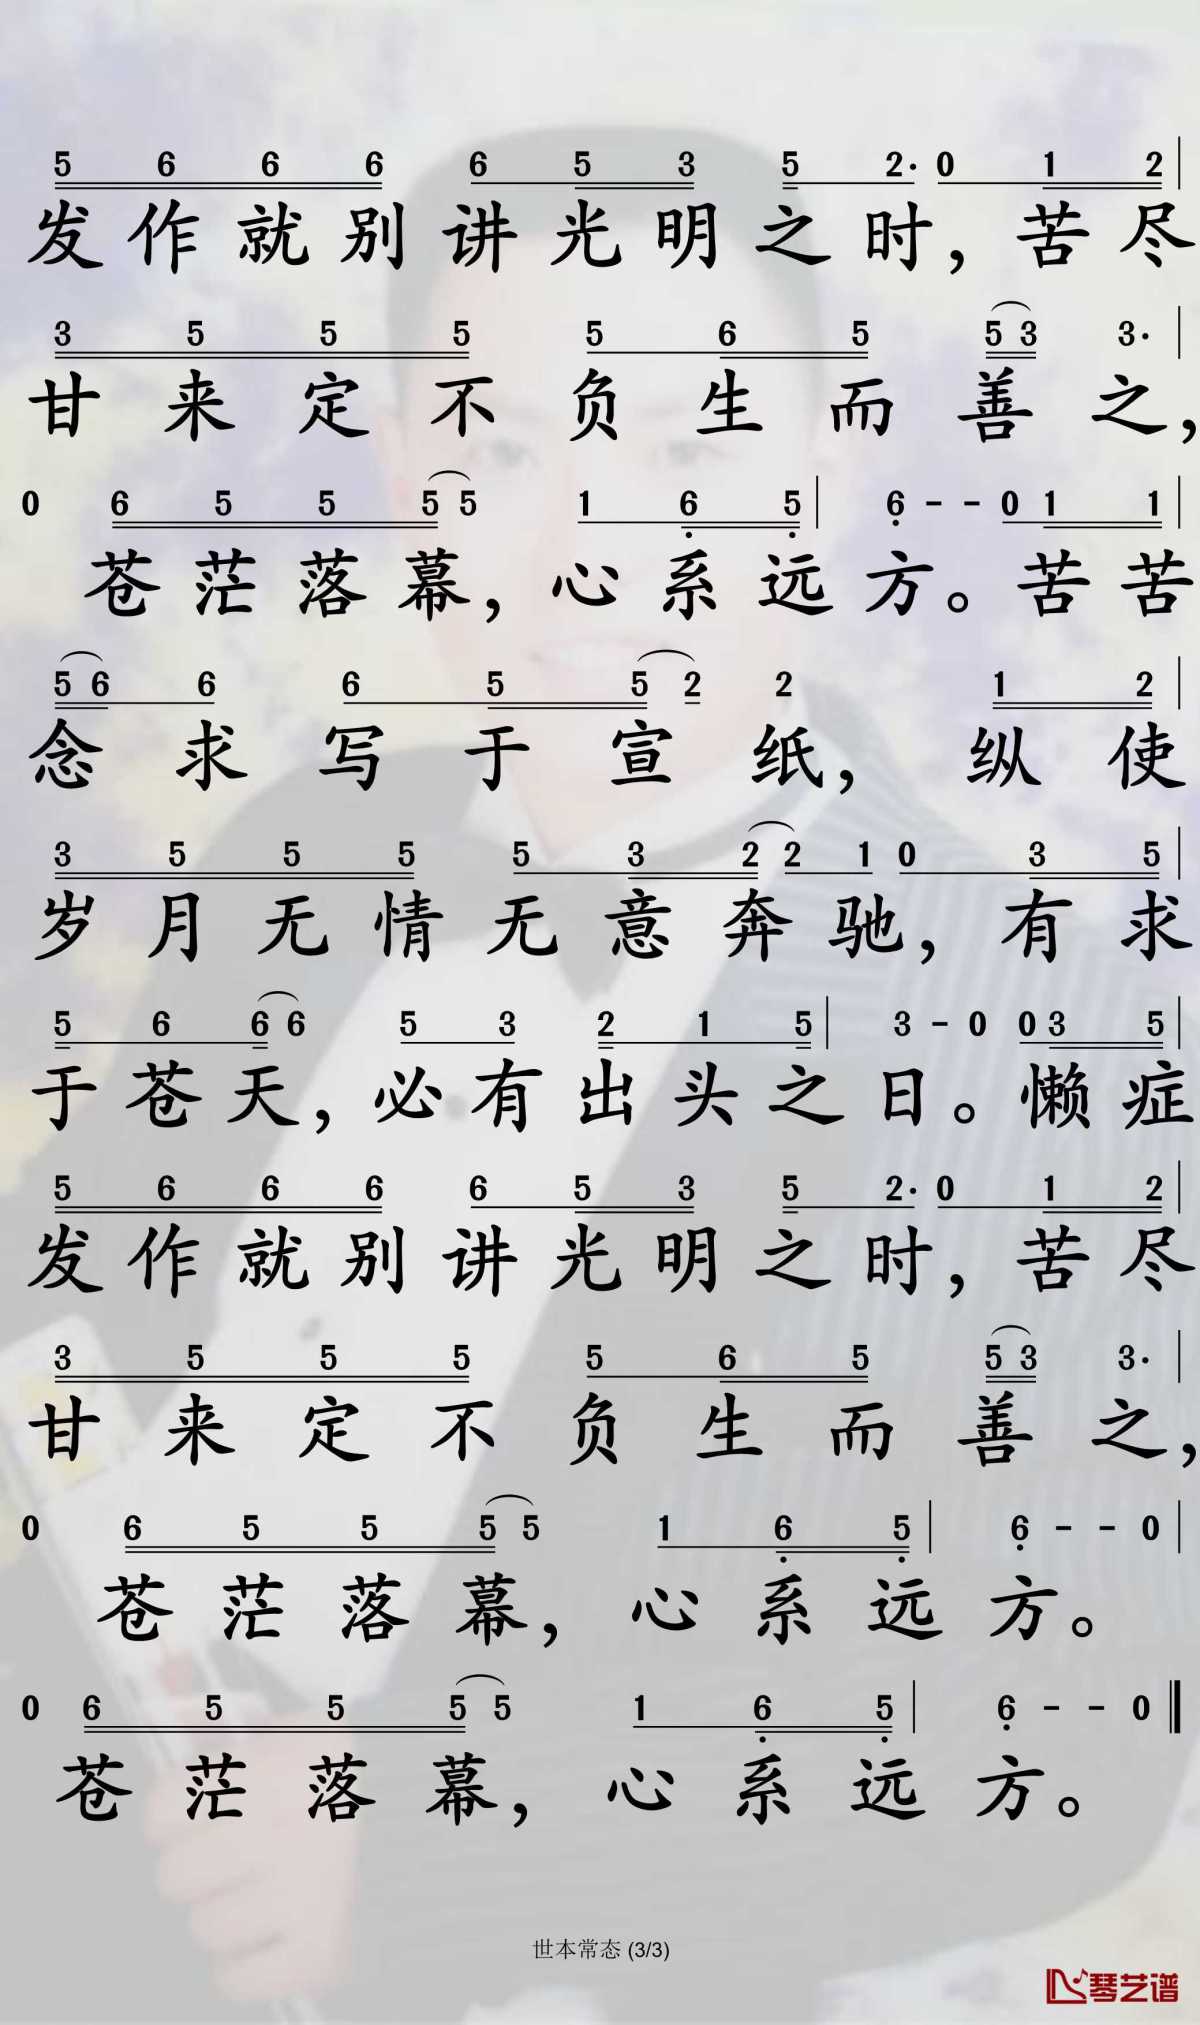 5 6 6 6 6 5 3 5 2· 0 1 2
发作就别讲光明之时，苦尽
3 5 5 5 5 6 5 5 3 3·
甘来定不负生而善之，
0 6 5 5 5 5 1 6 5 6 - - 0 1 1
苍茫落幕，心系远方。苦苦
5 6 6 6 5 5 2 2 1 2
念求写于宣纸，纵使
3 5 5 5 5 3 2 2 1 0 3 5
岁月无情无意奔驰，有求
5 6 6 6 5 3 2 1 5 3 - 0 0 3 5
于苍天，必有出头之日。懒症
5 6 6 6 6 5 3 5 2· 0 1 2
发作就别讲光明之时，苦尽
3 5 5 5 5 6 5 5 3 3·
甘来定不负生而善之，
0 6 5 5 5 5 1 6 5 6 - - 0
苍茫落幕，心系远方。
0 6 5 5 5 5 1 6 5 6 - - 0
苍茫落幕，心系远方。
世本常态 (3/3)
琴艺谱